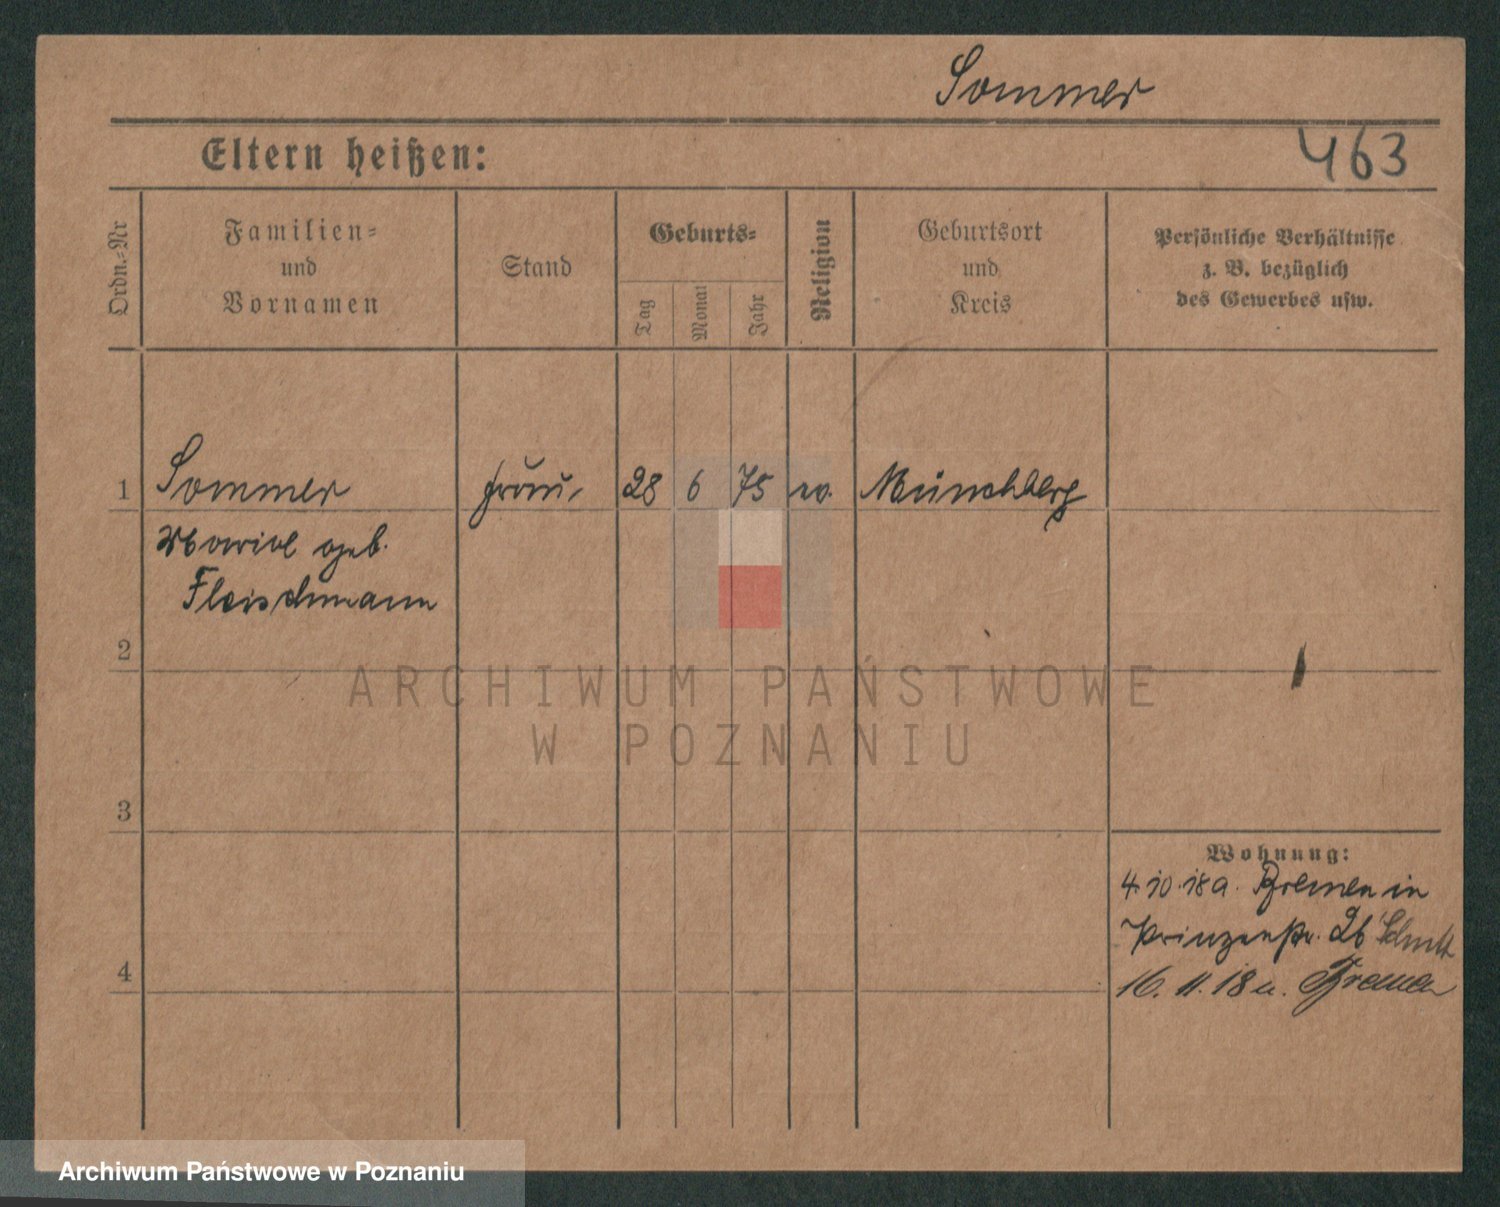 Sommer
Eltern heißen:
463
Ordn.-Nr
Familien-
und
Vornamen
Stand
Geburts-
Tag
Monat
Jahr
Religion
Geburtsort
und
Kreis
Persönliche Verhältnisse
z. B. bezüglich
des Gewerbes usw.
1 Sommer Frau, 28 6 75 ev. Münchberg
Marie geb.
Fleischmann
2
ARCHIWUM PAŃSTWOWE
W POZNANIU
3
Wohnung:
4.10.18 a. Bremen in
Prinzenstr. 26
4
16. 11. 18 n. Bremen
Archiwum Państwowe w Poznaniu